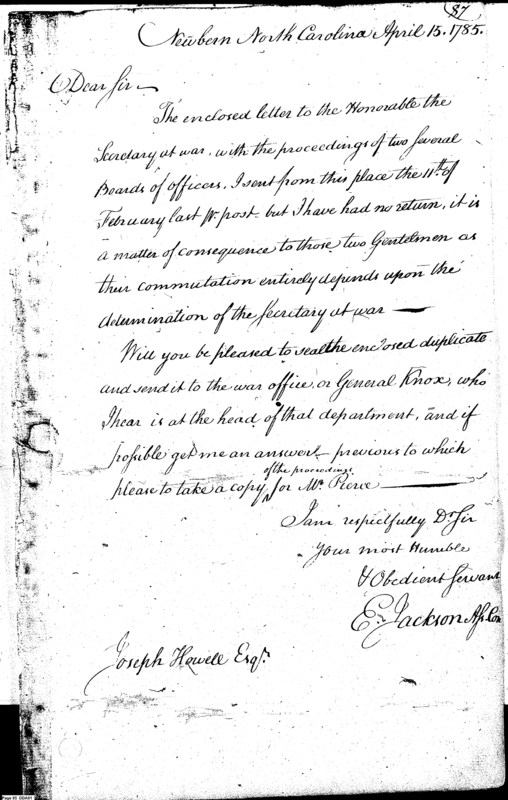 87
Newbern North Carolina April 15. 1785.
Dear Sir —
The enclosed letter to the Honorable the
Secretary at war, with the proceedings of two several
Boards of officers, I sent from this place the 11th. of
February last pr. post - but I have had no return, it is
a matter of consequence to those two Gentelmen as
their commutation entirely depends upon the
determination of the Secritary at war —
Will you be pleased to seal the enclosed duplicate
and send it to the war office, or General Knox, who
I hear is at the head of that department, and if
possible get me an answer - previous to which
of the proceedings
please to take a copy ^ for Mr. Pierce —
I am respectfully Dr. Sir
Your most Humble
& Obedient Servant
Er. Jackson Ass Com
Joseph Howell Esqr.